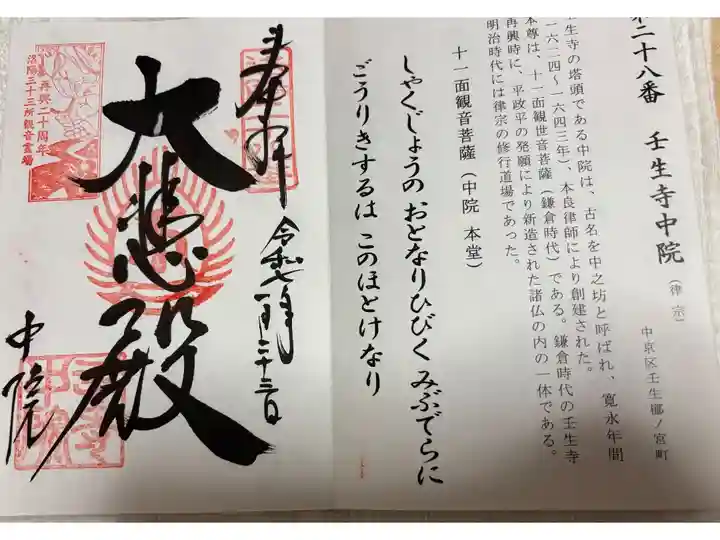 二十八番 壬生寺中院(律宗)
中京区壬生梛ノ宮町
生寺の塔頭である中院は、古名を中之坊と呼ばれ、寛永年間
一六二四～一六四三年)、本良律師により創建された。
本尊は、十一面観世音菩薩(鎌倉時代)である。鎌倉時代の壬生寺
再興時に、平政平の発願により新造された諸仏の内の一体である。
明治時代には律宗の修行道場であった。
十一面観音菩薩(中院 本堂)
しゃくじょうの おとなりひびく みぶでらに
ごうりきするは このほとけなり
奉拝
令和七年 月二十三日
大悲殿
中院
再興二十周年
洛陽三十三所観音霊場